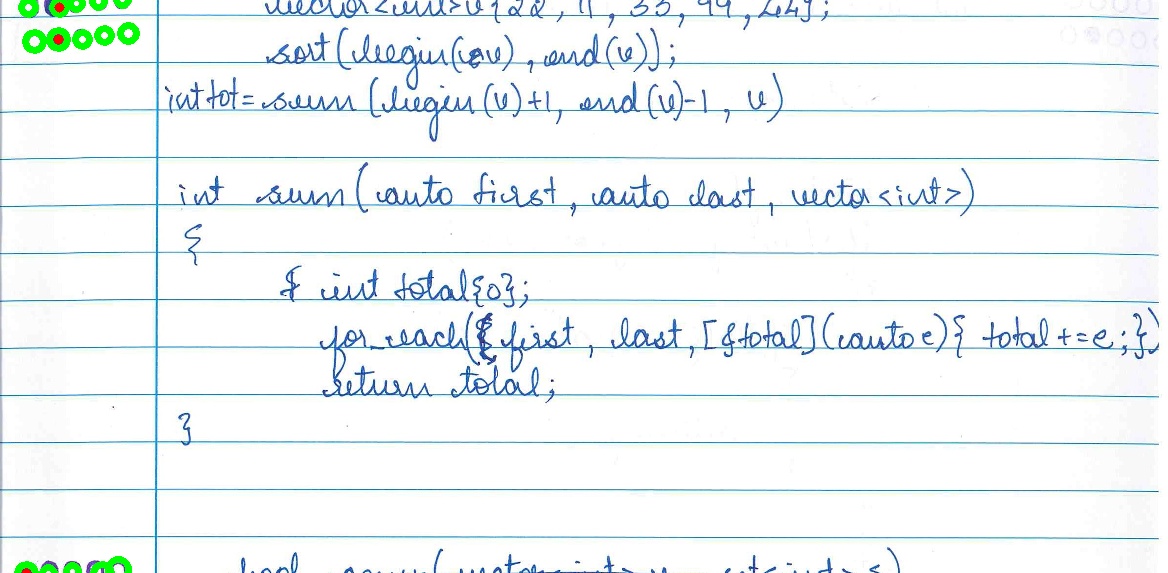 vector<int>v{22, 11, 33, 99, 44};
sort(begin(v), end(v));
int tot = sum (begin(v)+1, end(v)-1, v)
int sum(auto first, auto last, vector<int>)
{
int total{0};
for_each(first, last, [&total](auto e){ total += e;})
return total;
}
bool (vector<int> v, set<int> s)